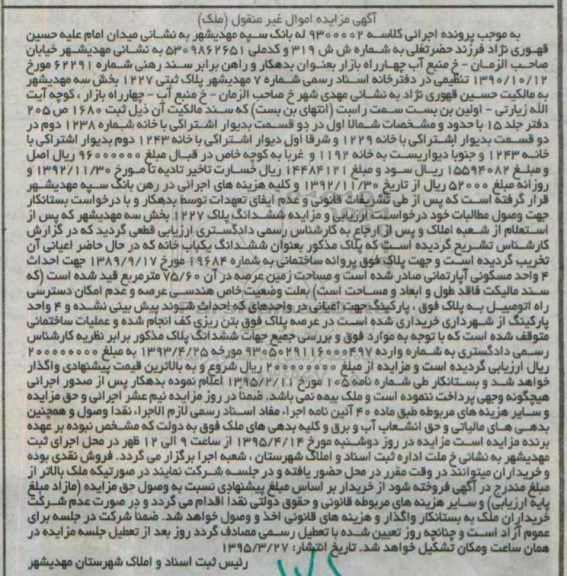 آگهی مزایده اموال غیر منقول (ملک)
به موجب پرونده اجرائی کلاسه ۹۳۰۰۰۰۲ له بانک سپه مهدیشهر به نشانی میدان امام علیه حسین
قهوری نژاد فرزند حضرتقلی به شماره ش ش ۳۱۹ و کدملی ۵۳۰۹۸۶۲۶۵۱ به نشانی مهدیشهر خیابان
صاحب الزمان - خ منبع آب چهارراه بازار بعنوان بدهکار و راهن برابر سند رهنی شماره ۶۲۲۹۱ مورخ
۱۳۹۰/۱۰/۱۲ تنظیمی در دفترخانه اسناد رسمی شماره ۷ مهدیشهر پلاک ثبتی ۱۲۲۷ بخش سه مهدیشهر
به مالکیت حسین قهوری نژاد به نشانی مهدی شهر خ صاحب الزمان - خ منبع آب - چهارراه بازار ، کوچه آیت
الله زیارتی - اولین بن بست سمت راست (انتهای بن بست) که سند مالکیت آن ذیل ثبت ۱۶۸۰ ص ۲۰۵
دفتر جلد ۱۵ با حدود و مشخصات شمالا اول در دو قسمت بدیوار اشتراکی با خانه شماره ۱۲۳۸ دوم در
دو قسمت بدیوار اشتراکی با خانه ۱۲۲۹ و شرقا اول دیوار اشتراکی با خانه ۱۲۴۳ دوم بدیوار اشتراکی با
خانه ۱۲۴۳ و جنوبا دیواریست به خانه ۱۱۹۲ و غربا به کوچه خاص در قبال مبلغ ۹۶۰۰۰۰۰۰ ریال اصل
و مبلغ ۱۵۵۹۴۰۸۲ ریال سود و مبلغ ۱۴۴۸۴۱۲۱ ریال خسارت تاخیر تادیه تا مورخ ۱۳۹۲/۱۱/۳۰ و
روزانه مبلغ ۵۲۰۰۰ ریال از تاریخ ۱۳۹۲/۱۱/۳۰ و کلیه هزینه های اجرائی در رهن بانک سپه مهدیشهر
قرار گرفته است که پس از طی تشریفات قانونی و عدم ایفای تعهدات توسط بدهکار و با درخواست بستانکار
جهت وصول مطالبات خود درخواست ارزیابی و مزایده ششدانگ پلاک ۱۲۲۷ بخش سه مهدیشهر که پس از
استعلام از شعبه املاک و پس از ارجاع به کارشناس رسمی دادگستری ارزیابی قطعی گردید که در گزارش
کارشناس تشریح گردیده است که پلاک مذکور بعنوان ششدانگ یکباب خانه که در حال حاضر اعیانی آن
تخریب گردیده است و جهت پلاک فوق پروانه ساختمانی به شماره ۱۹۶۸۴ مورخ ۱۳۸۹/۹/۱۷ جهت احداث
۴ واحد مسکونی آپارتمانی صادر شده است و مساحت زمین عرصه در آن ۷۵/۶۰ مترمربع قید شده است (که
سند مالیکت فاقد طول و ابعاد و مساحت است) بعلت وضعیت خاص هندسی عرصه و عدم امکان دسترسی
راه اتومبیل به پلاک فوق ، پارکینگ جهت اعیانی در واحدهای که احداث شوند پیش بینی نشده و ۴ واحد
پارکینگ از شهرداری خریداری شده است در عرصه پلاک فوق بتن ریزی کف انجام شده و عملیات ساختمانی
متوقف شده است که با توجه به موارد فوق و بررسی جمیع جهات ششدانگ پلاک مذکور برابر نظریه کارشناس
رسمی دادگستری به شماره وارده ۹۳۰۵۰۲۹۱۱۶۰۰۰۴۹۷ مورخه ۱۳۹۳/۴/۲۵ به مبلغ ۲۰۰۰۰۰۰۰۰
ریال ارزیابی گردیده است و مزایده از مبلغ ۲۰۰۰۰۰۰۰۰ ریال شروع و به بالاترین قیمت پیشنهادی واگذار
خواهد شد و بستانکار طی شماره نامه ۱۰۵ مورخ ۱۳۹۵/۲/۱۱ اعلام نموده بدهکار پس از صدور اجرائی
هیچگونه وجهی پرداخت ننموده است و ملک بیمه نمی باشد. ضمنا در روز مزایده نیم عشر اجرائی و حق مزایده
و سایر هزینه های مربوطه طبق ماده ۴۰ آئین نامه اجرا، مفاد اسناد رسمی لازم الاجرا، نقدا وصول و همچنین
بدهی های مالیاتی و حق انشعاب آب و برق و کلیه بدهی های ملک فوق به دولت که مشخص نبوده بر عهده
برنده مزایده است مزایده در روز دوشنبه مورخ ۱۳۹۵/۴/۱۴ از ساعت ۹ الی ۱۲ ظهر در محل اجرای ثبت
مهدیشهر به نشانی خ ملت اداره ثبت اسناد و املاک شهرستان ، شعبه اجرا برگزار می گردد. فروش نقدی بوده
و خریداران میتوانند در وقت مقرر در محل حضور یافته و در جلسه شرکت نمایند در صورتیکه ملک بالاتر از
مبلغ مندرج در آگهی فروخته شود از خریدار بر اساس مبلغ پیشنهادی نسبت به وصول حق مزایده (مازاد مبلغ
پایه ارزیابی) و سایر هزینه های مربوطه قانونی و حقوق دولتی نقدا اقدام می گردد و در صورت عدم شرکت
خریداران ملک به بستانکار واگذار و هزینه های قانونی اخذ و وصول خواهد شد. ضمنا شرکت در جلسه برای
عموم آزاد است و چنانچه روز تعیین شده با تعطیل رسمی مصادف گردد روز بعد از تعطیل جلسه مزایده در
همان ساعت ومکان تشکیل خواهد شد. تاریخ انتشار: ۱۳۹۵/۳/۲۷
رئیس ثبت اسناد و املاک شهرستان مهدیشهر